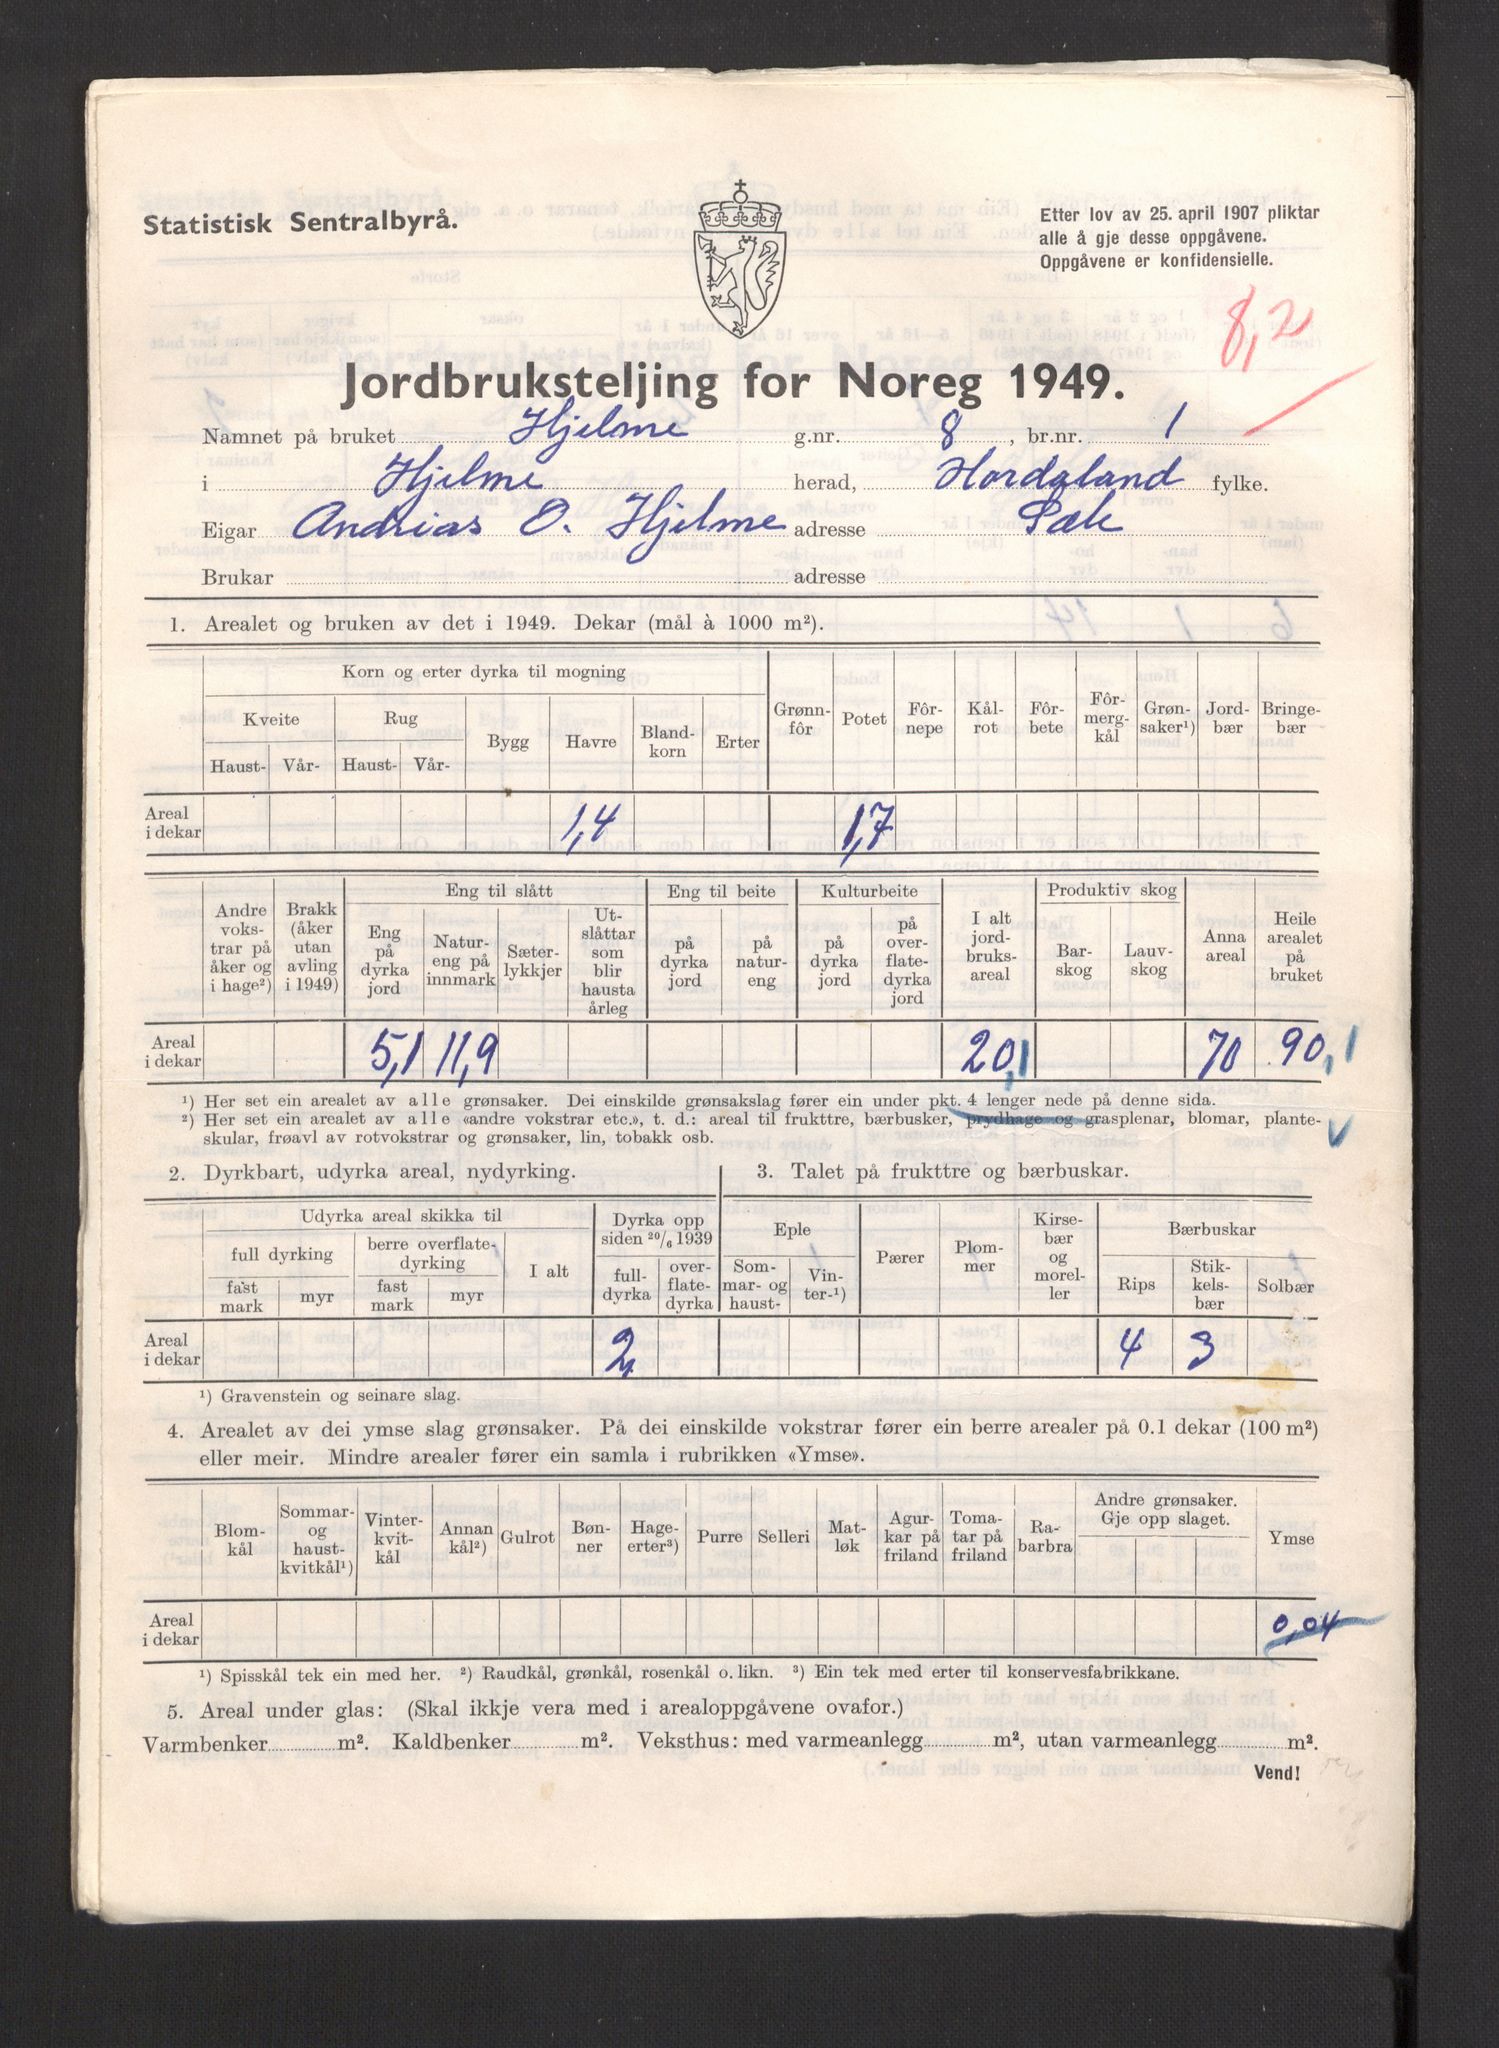 Statistisk Sentralbyrå.
Etter lov av 25. april 1907 pliktar
alle å gje desse oppgåvene.
Oppgåvene er konfidensielle.
8,2
Jordbruksteljing for Noreg 1949.
Namnet på bruket Hjelme g.nr. 8, br.nr. 1
i Hjelme herad, Hordaland fylke.
Eigar Andrias O. Hjelme adresse Sæle
Brukar adresse
1. Arealet og bruken av det i 1949. Dekar (mål à 1000 m²).
Korn og erter dyrka til mogning
Kveite Rug Bygg Havre Bland-korn Erter Grønn-fôr Potet Fôr-nepe Kål-rot Fôr-bete Fôr-merg-kål Grøn-saker¹) Jord-bær Bringe-bær
Haust- Vår- Haust- Vår-
Areal i dekar 1,4 1,7
Eng til slått Eng til beite Kulturbeite Produktiv skog
Andre voks-trar på åker og i hage²) Brakk (åker utan avling i 1949) Eng på dyrka jord Natur-eng på innmark Sæter-lykkjer Ut-slåttar som blir hausta årleg på dyrka jord på natur-eng på dyrka jord på over-flate-dyrka jord I alt jord-bruks-areal Bar-skog Lauv-skog Anna areal Heile arealet på bruket
Areal i dekar 5,1 11,9 20,1 70 90,1
¹) Her set ein arealet av alle grønsaker. Dei einskilde grønsakslag fører ein under pkt. 4 lenger nede på denne sida.
²) Her set ein arealet av alle «andre vokstrar etc.», t. d.: areal til frukttre, bærbusker, prydhage og grasplenar, blomar, plante-
skular, frøavl av rotvokstrar og grønsaker, lin, tobakk osb.
2. Dyrkbart, udyrka areal, nydyrking.
3. Talet på frukttre og bærbuskar.
Udyrka areal skikka til Dyrka opp siden 20/6 1939 Eple Pærer Plom-mer Kirse-bær og morel-ler Bærbuskar
full dyrking berre overflate-dyrking I alt full-dyrka over-flate-dyrka Som-mar- og haust- Vin-ter-¹) Rips Stik-kels-bær Solbær
fast mark myr fast mark myr
Areal i dekar 2 4 3
¹) Gravenstein og seinare slag.
4. Arealet av dei ymse slag grønsaker. På dei einskilde vokstrar fører ein berre arealer på 0.1 dekar (100 m²)
eller meir. Mindre arealer fører ein samla i rubrikken «Ymse».
Blom-kål Sommar- og haust-kvitkål¹) Vinter-kvit-kål Annan kål²) Gulrot Bøn-ner Hage-erter³) Purre Selleri Mat-løk Agur-kar på friland Toma-tar på friland Ra-barbra Andre grønsaker. Gje opp slaget. Ymse
Areal i dekar 0,04
¹) Spisskål tek ein med her. ²) Raudkål, grønkål, rosenkål o. likn. ³) Ein tek med erter til konservesfabrikkane.
5. Areal under glas: (Skal ikkje vera med i arealoppgåvene ovafor.)
Varmbenker m². Kaldbenker m². Veksthus: med varmeanlegg m², utan varmeanlegg m².
Vend!